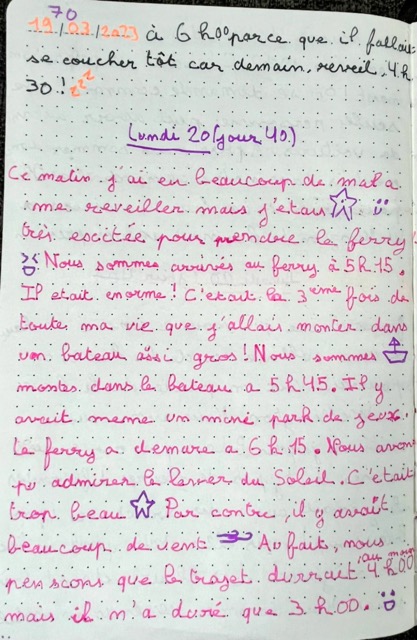 70
19/03/2023 à 6h00 parce que il fallait
se coucher tôt car demain, reveil 4h
30! zzz
Lundi 20 (jour 40.)
Ce matin j'ai eu beaucoup de mal a
me reveiller mais j'etais
très excitée pour prendre le ferry!
Nous sommes arrivés au ferry à 5h15.
Il etait enorme! C'etait la 3ième fois de
toute ma vie que j'allais monter dans
un bateau assi gros! Nous sommes
montes dans le bateau a 5h45. Il y
avait meme un mini park de jeux!
Le ferry a demare a 6h15. Nous avons
pu admirer le lever du Soleil. C'était
trop beau Par contre, il y avait
beaucoup de vent Au fait, nous
pensions que le trajet durrait au moin 4h00
mais il n'a duré que 3h00.